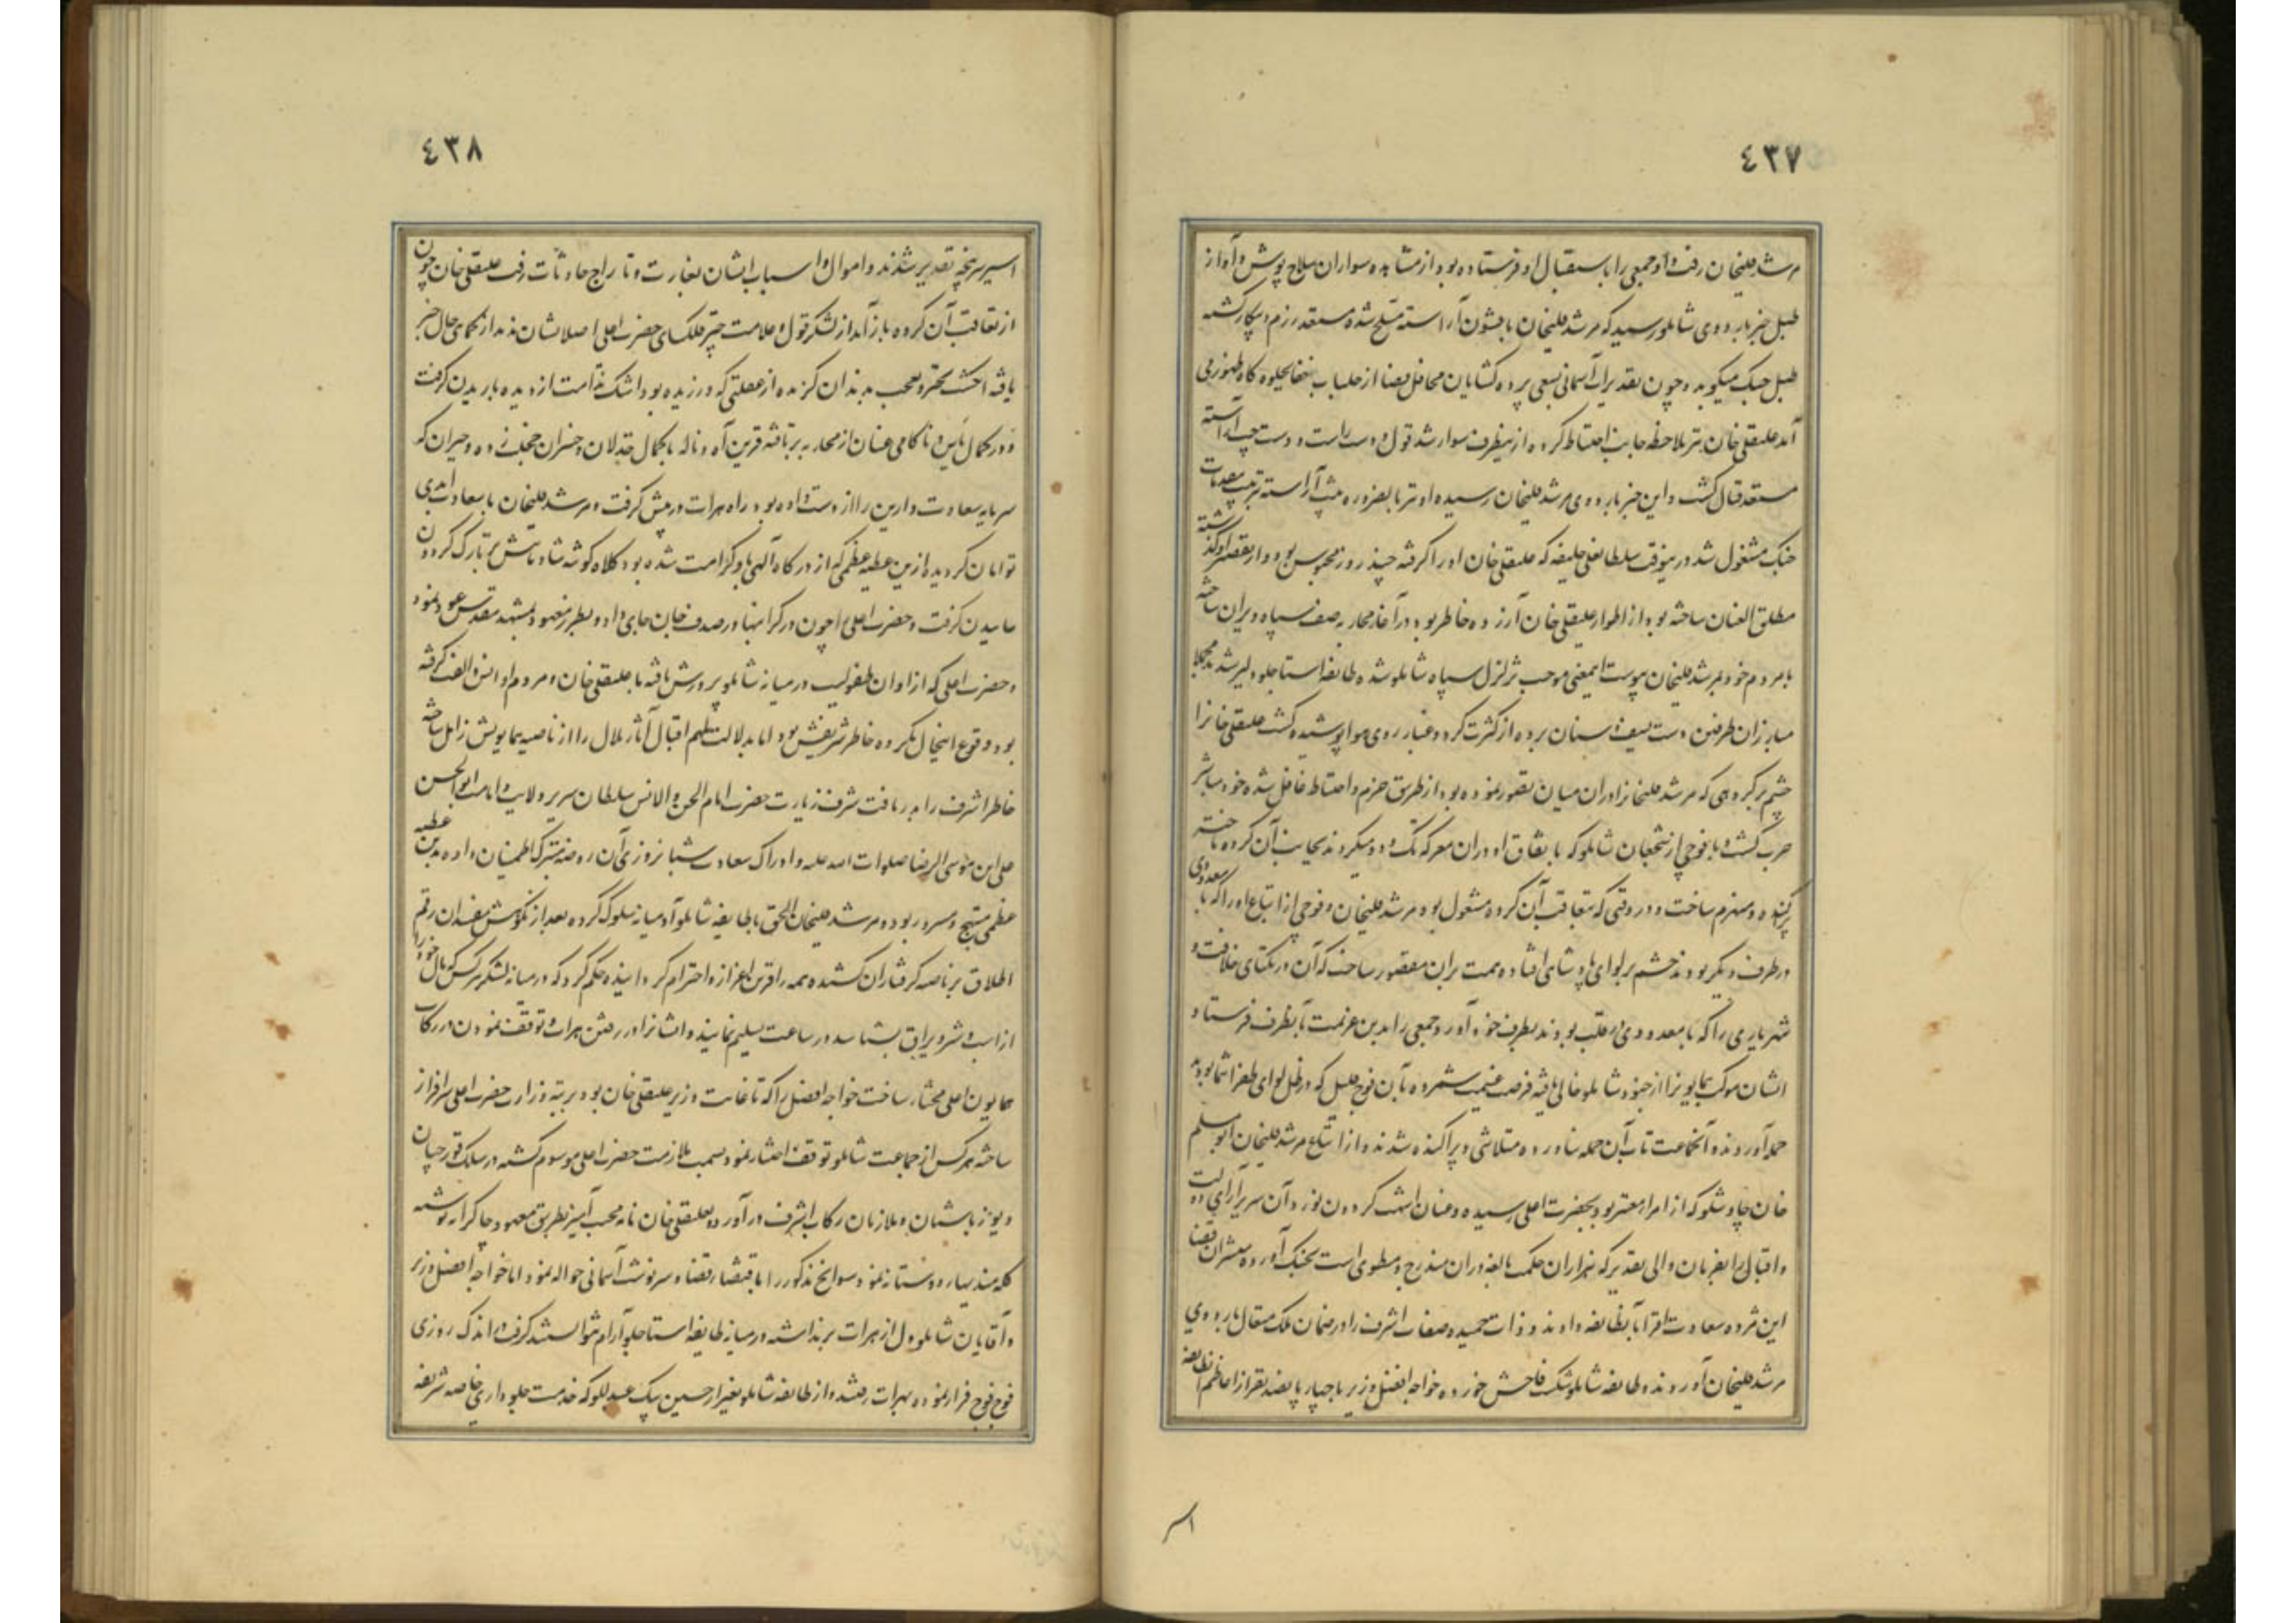 ٤٣٧
مرشدقلیخان رفته او جمعی را باستقبال او فرستاده بود از مشاهده سواران سلاح پوش و آواز
طبل خبر باردوی شاملو رسید که مرشدقلیخان با قشون آراسته مسلح شده مستعد رزم و پیکار گشته
طبل جنک میکوبد و چون تقدیرات آسمانی بسعی پرده کشایان محافل قضا از جلباب خفا بجلوه کاه ظهور می
آمد علیقلی خان نیز ملاحظه جانب احتیاط کرده از ینطرف سوار شد قول و دست راست و دست چپ آراسته
مستعد قتال کشت و این خبر باردوی مرشدقلیخان رسیده او نیز بالضروره صف آراسته بترتیب مقدمات
جنک مشغول شد در ینوقت سلطانعلی خلیفه که علیقلی خان او را کرفته چند روز محبوس بود و از تقصیر او کذشته
مطلق العنان ساخته بود از اطوار علیقلی خان آزرده خاطر بود در آغاز محاربه صف سپاه ویران ساخته
با مردم خود بمرشدقلیخان پیوست اینمعنی موجب تزلزل سپاه شاملو شده طایفه استاجلو دلیر شدند مجملا
مبارزان طرفین دست بسیف و سنان برده از کثرت کرد و غبار روی هوا پوشیده کشت علیقلی خانرا
چشم بر کروهی که مرشدقلیخانرا در ان میان تصور نموده بود از طریق حزم و احتیاط غافل شده خود مباشر
حرب کشته با فوجی از شجعان شاملو که باتفاق او در ان معرکه تک و دو میکردند بجانب آن کروه تاخته
پراکنده و منهزم ساخت و در وقتی که بتعاقب آن کروه مشغول بود مرشدقلیخان و فوجی از اتباع او را که با معدودی
در طرف دیکر بودند چشم بر لوای پادشاهی افتاده همت بران مقصور ساخت که آن در یکتای خلافت و
شهریاری را که با معدودی در قلب بودند بطرف خود آورد جمعی را بدین عزیمت بآنطرف فرستاد
ایشان موکب همایونرا از جنود شاملو خالی یافته فرصت غنیمت شمرده بآن فوج قلیل که در ظل لوای ظفر انتما بودند
حمله آوردند و آنجماعت تاب آن حمله نیاورده متلاشی و پراکنده شدند و از اتباع مرشدقلیخان ابو مسلم
خان چاوشلو که از امرا معتبر بود بحضرت اعلی رسیده و عنان اشهب کردون نورد آن سریر آرای دولت
و اقبال را بفرمان والی تقدیر که هزاران حکمت بالغه دران مندرج و مطوی است بچنک آورده مبشران قضا
این مژده سعادت افزا بآنطایفه دادند و ذات حمیده صفات اشرف را در ضمان ملک متعال باردوی
مرشدقلیخان آوردند و طایفه شاملو شکست فاحش خورده خواجه افضل وزیر با چهار پانصد نفر از اعاظم آنطایفه
اسیر
٤٣٨
اسیر سرپنجه تقدیر شدند و اموال و اسباب ایشان بغارت و تاراج حادثات رفت علیقلی خان چون
از تعاقب آن کروه باز آمد از لشکر قول و علامت چتر فلکسای حضرت اعلی اصلا نشان ندید از حکمای حال خبر
یافته انکشت تحیر و تعجب بدندان کزیده از غفلتی که ورزیده بود اشک ندامت از دیده باریدن کرفت
و در کمال یاس و ناکامی عنان از محاربه برتافته قرین آه و ناله با کمال خذلان و خسران خجلت زده و حیران که
سرمایه سعادت دارین را از دست داده بود راه هرات در پیش کرفت و مرشدقلیخان با سعادت ابدی
توامان کردیده ازین عطیه عظمی که از درکاه آلهی باو کرامت شده بود کلاه کوشه شادمانیش بر تارک کردون
ساییدن کرفت و حضرت اعلی را چون در کرانبها در صدف جان جای داد و بطرز معهود بمشهد مقدس عود نمود
و حضرت اعلی که از اوان طفولیت در میانه شاملو پرورش یافته با علیقلی خان و مردم او انس و الفت کرفته
بود وقوع اینحال مکروه خاطر شریفش بود اما بدلالت ملهم اقبال آثار ملال را از ناصیه همایونش زایل ساخته
خاطر اشرف را بدریافت شرف زیارت حضرت امام الجن و الانس سلطان سریر ولایت و امامت ابو الحسن
علی ابن موسی الرضا صلوات الله علیه و ادراک سعادت شبانروزی آن روضه متبرکه اطمینان داده بدین عطیه
عظمی مبتهج و مسرور بود و مرشدقلیخان الحق با طایفه شاملو آدمیانه سلوک کرده بعد از نکوهش مفسدان رقم
اطلاق بر ناصیه کرفتاران کشیده همه را قرین اعزاز و احترام کردانیده حکم کرد که در میانه لشکر هر کس که مال خود را
از اسب و شتر و یراق بشناسد در ساعت تسلیم نمایند و ایشانرا در رفتن هرات و توقف نمودن در رکاب
همایون اعلی مختار ساخت خواجه افضل را که تا غایت وزیر علیقلی خان بود برتبه وزارت حضرت اعلی سرافراز
ساخته هر کس از جماعت شاملو توقف اختیار نمود بسمت ملازمت حضرت اعلی موسوم کشته در سلک قورچیان
و یوزباشیان و ملازمان رکاب اشرف در آورد و بعلیقلی خان نامه محبت آمیز بطریق معهود چاکرانه نوشته
کله مندیها دوستانه نمود و سوانح مذکور را باقتضا قضا و سرنوشت آسمانی حواله نمود اما خواجه افضل وزیر
و آقایان شاملو دل از هرات بر نداشته در میانه طایفه استاجلو آرام نتوانستند کرفت و اندک روزی
فوج فوج فرار نموده بهرات رفتند و از طایفه شاملو بغیر از حسین بیک عبدللو که خدمت جلوداری خاصه شریفه